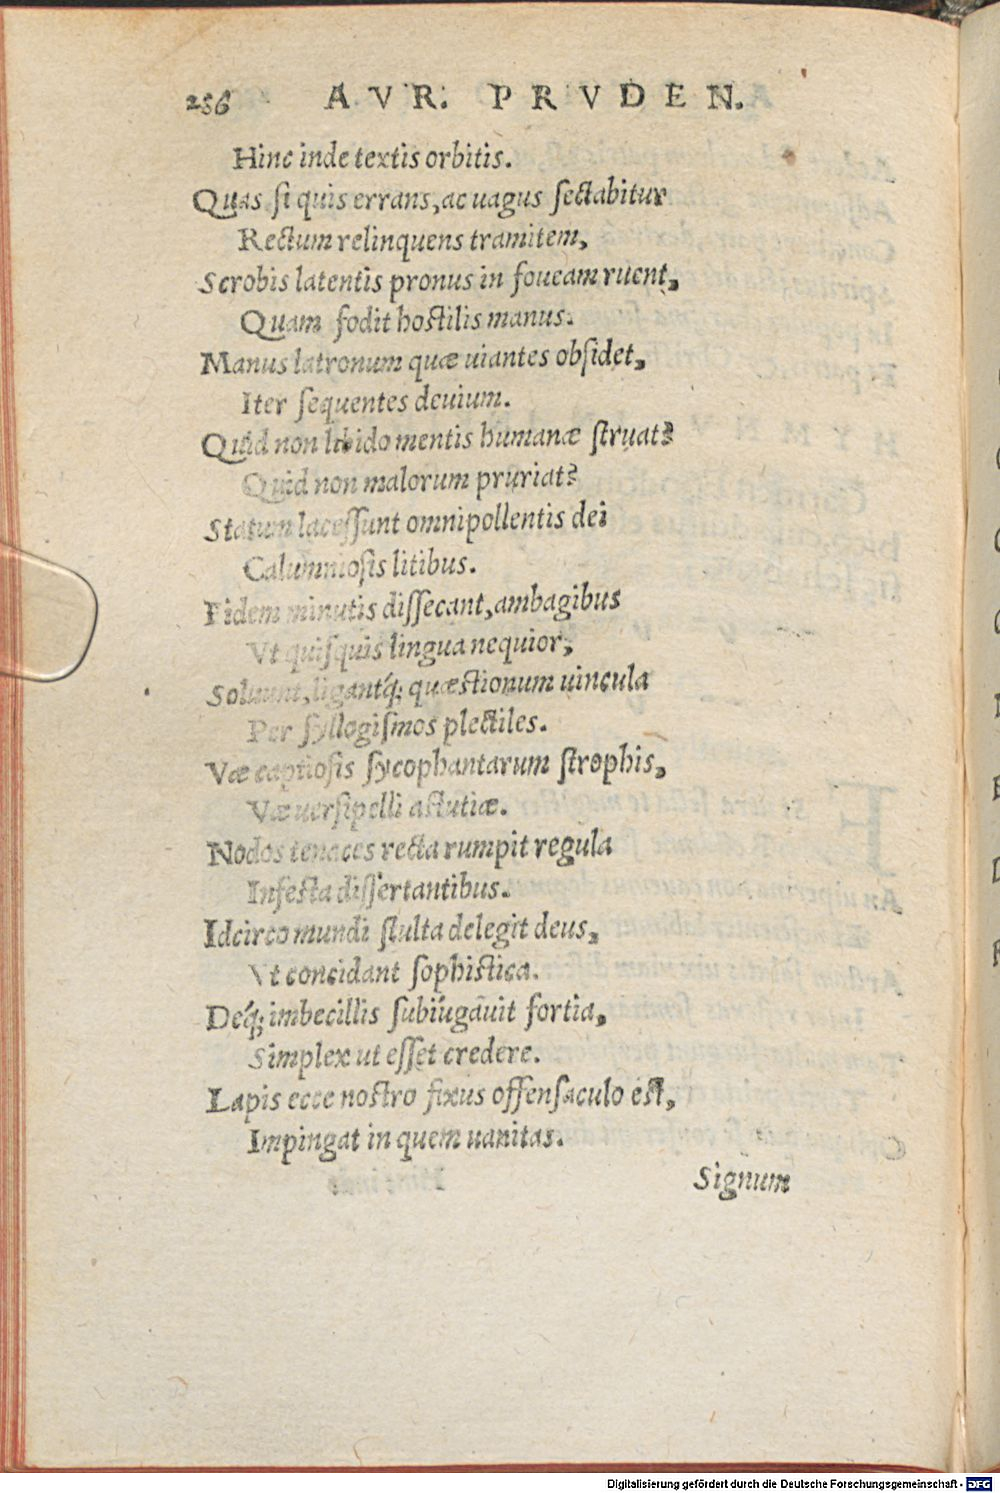 256 AVR. PRVDEN.
Hinc inde textis orbitis.
Quas si quis errans, ac uagus sectabitur
Rectum relinquens tramitem,
Scrobis latentis pronus in foueam ruent,
Quam fodit hostilis manus.
Manus latronum quæ uiantes obsidet,
Iter sequentes deuium.
Quid non libido mentis humanæ struat?
Quid non malorum pruriat?
Statum lacessunt omnipollentis dei
Calumniosis litibus.
Fidem minutis dissecant, ambagibus
Vt quisquis lingua nequior;
Soluunt, ligantq́; quæstionum uincula
Per syllogismos plectiles.
Væ captiosis sycophantarum strophis,
Væ uersipelli astutiæ.
Nodos tenaces recta rumpit regula
Infesta dissertantibus.
Idcirco mundi stulta delegit deus,
Vt concidant sophistica.
Deq́; imbecillis subiúgāuit fortia,
Simplex ut esset credere.
Lapis ecce nostro fixus offensaculo est,
Impingat in quem uanitas.
Signum
Digitalisierung gefördert durch die Deutsche Forschungsgemeinschaft - DFG